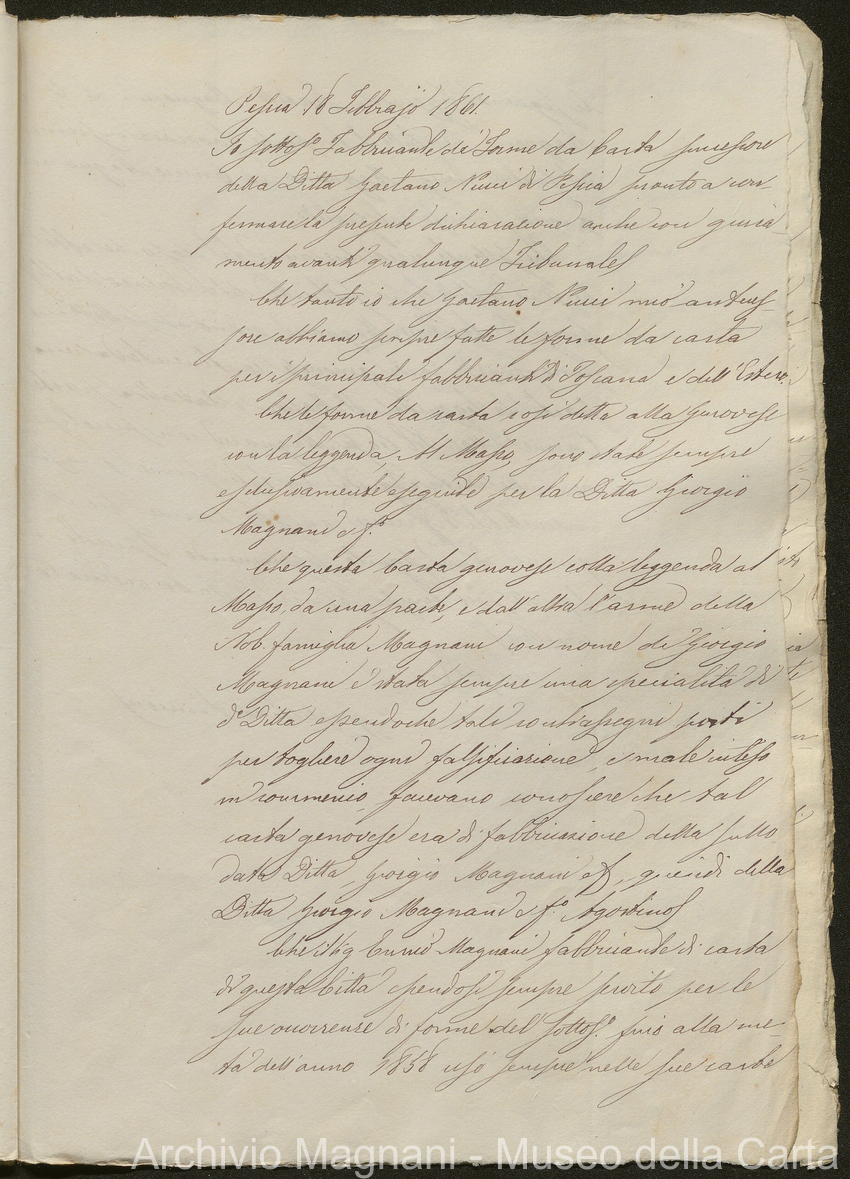 Pescia 18 Febbrajo 1861.
Io sottoso. Fabbricante di Forme da Carta successore
della Ditta Gaetano Nucci di Pescia pronto a con-
fermare la presente dichiarazione anche con giura-
mento avanti qualunque Tribunale
Che tanto io che Gaetano Nucci mio anteces-
sore abbiamo sempre fatte le forme da carta
per i principali fabbricanti di Toscana e dell'Estero.
Che le forme da carta così dette alla Genovese
con la leggenda, Al Masso, sono state sempre
esclusivamente eseguite per la Ditta Giorgio
Magnani e fo.
Che questa Carta genovese colla leggenda al
Masso, da una parte, e dall'altra l'arme della
Nob. famiglia Magnani con nome di Giorgio
Magnani è stata sempre una specialità di
da. Ditta essendoche tali contrassegni posti
per togliere ogni falsificazione, e male inteso
in commercio, facevano conoscere che tal
carta genovese era di fabbricazione della sullo
data Ditta, Giorgio Magnani e f, quindi della
Ditta Giorgio Magnani e fo. Agostino
Che il Sig Ennio Magnani fabbricante di carta
di questa Città essendosi sempre servito per le
sue occorrenze di forme del sottoso. fino alla me-
tà dell'anno 1858 usò sempre nelle sue carte
Archivio Magnani - Museo della Carta